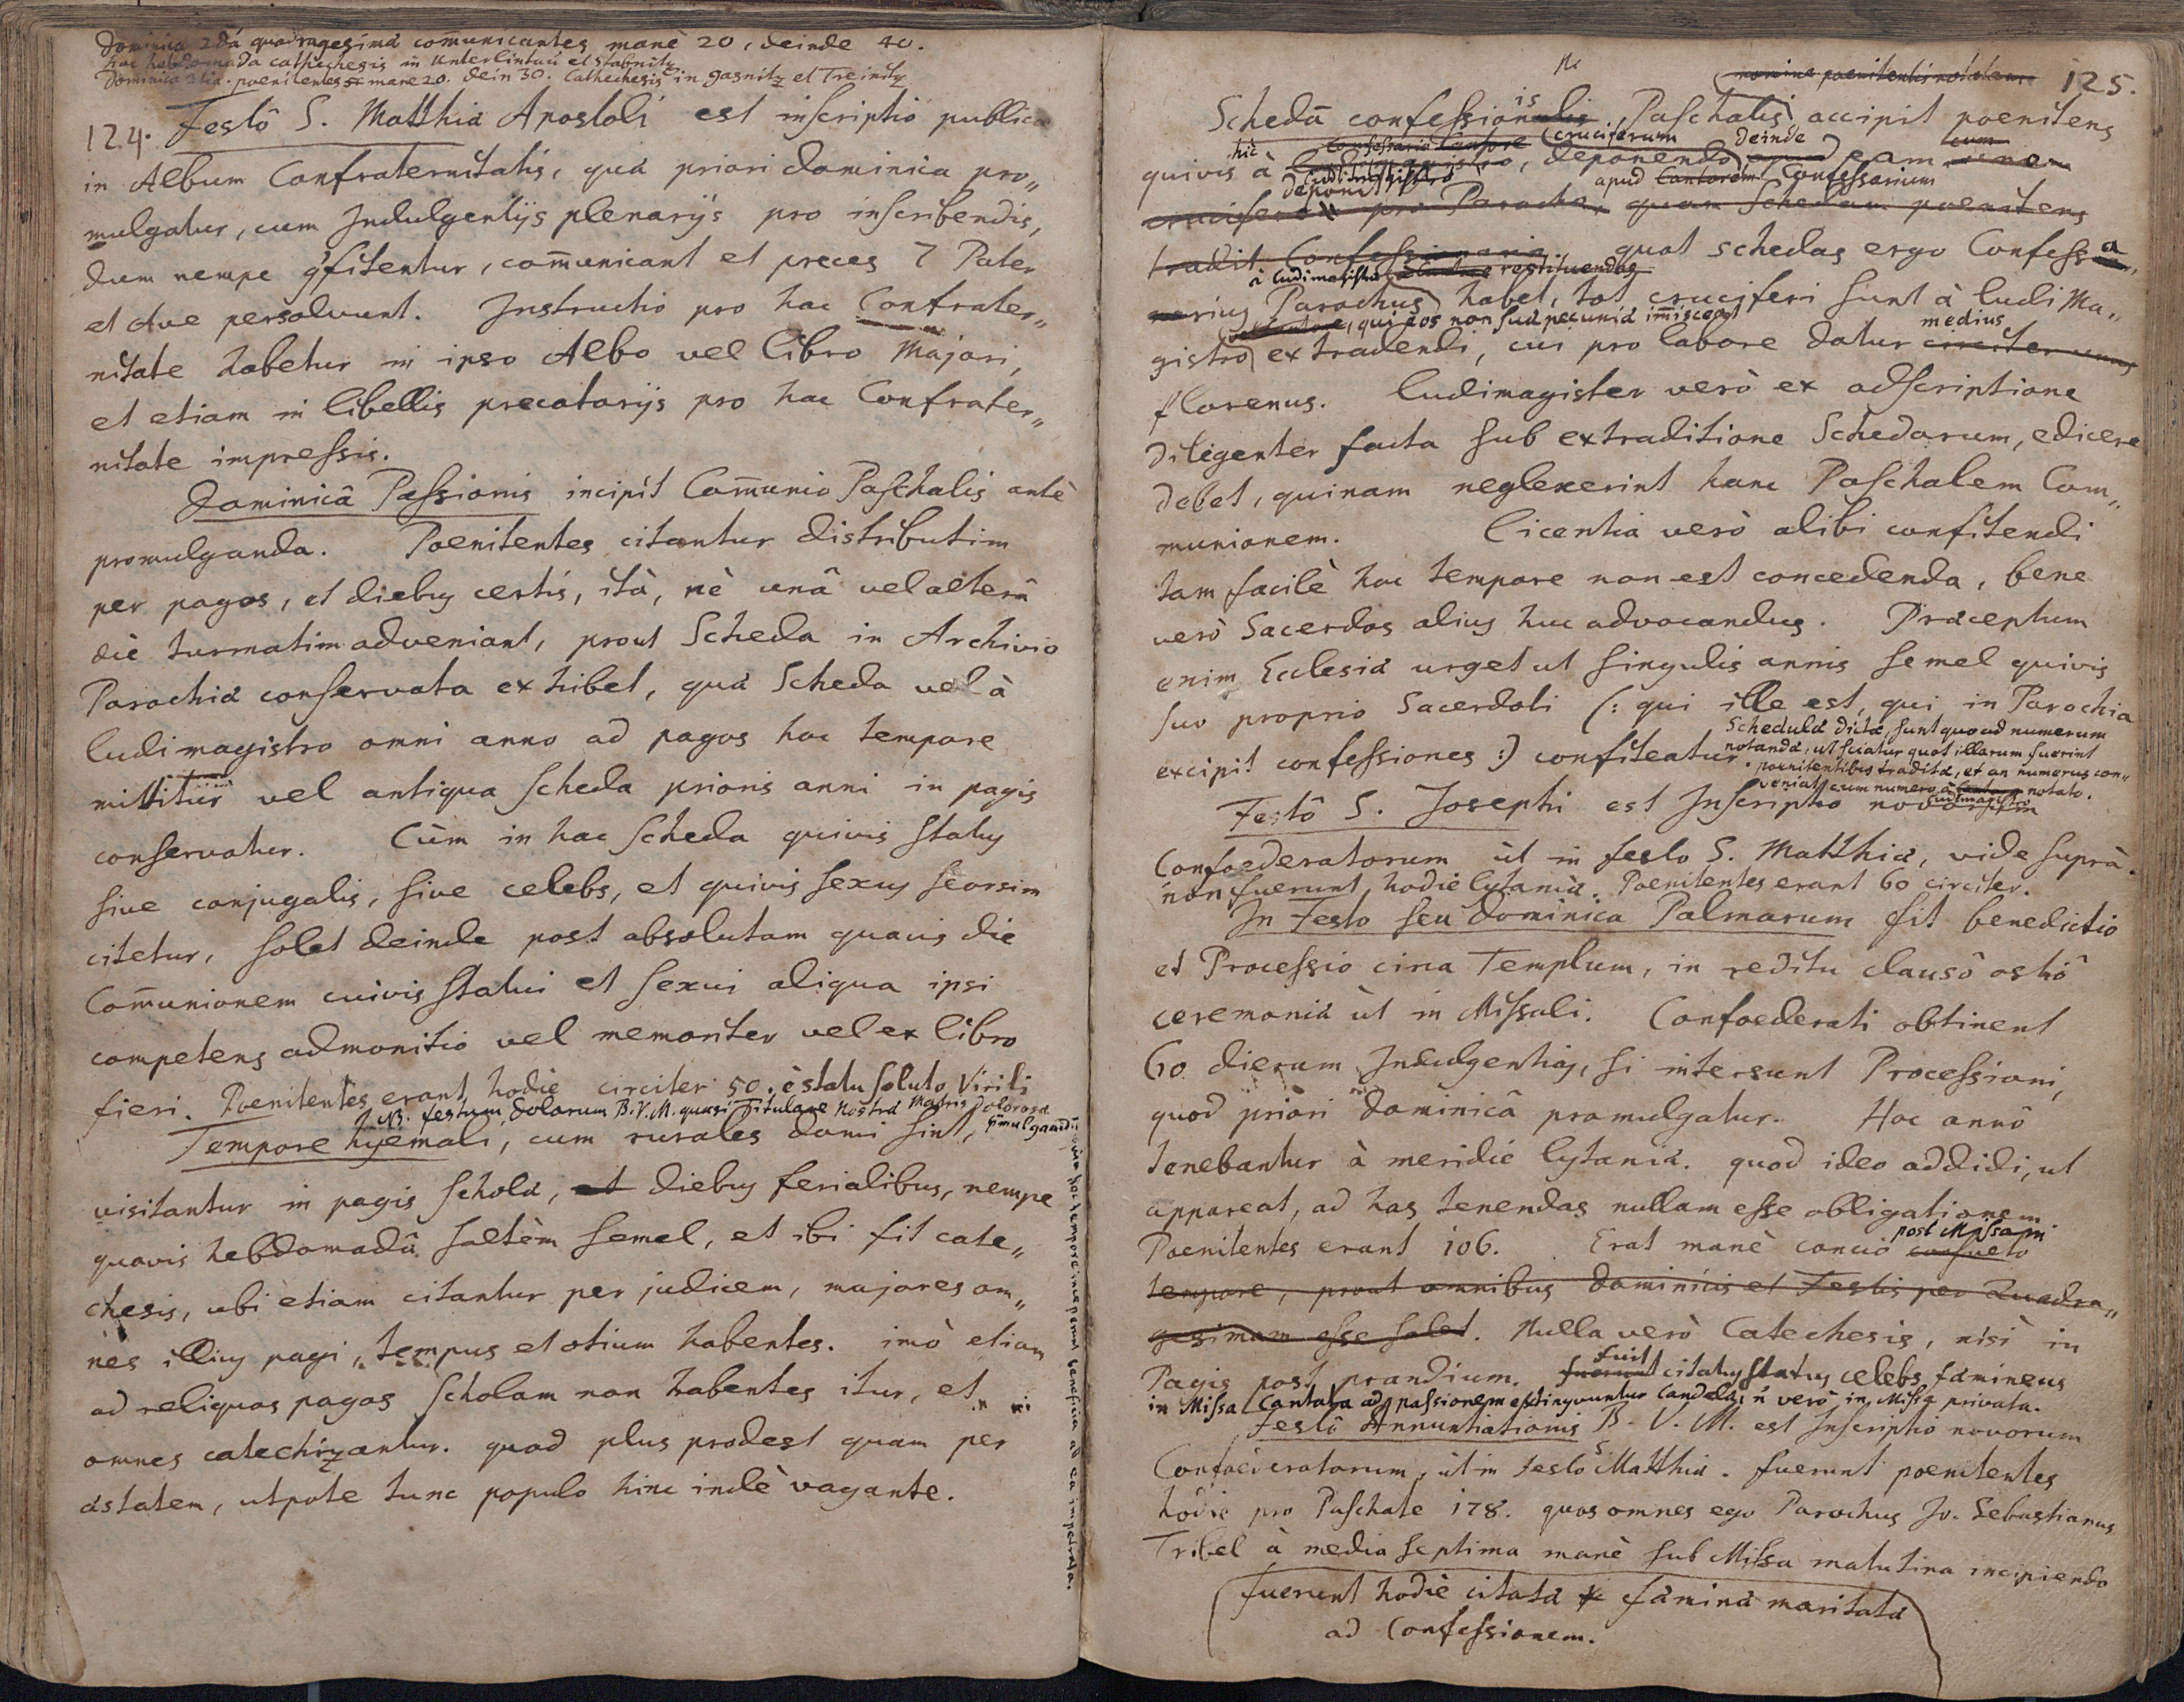 Dominica 2dâ quadragesimæ com̄unicantes manè 20, deinde 40.
hac hebdomada cathechesis in Unterlintau et Stabnitz
Dominica 3tia. poenitentes manè 20. dein 30. Cathechesis in gasnitz et Treinitz
124. Festô S. Matthiæ Apostoli est inscriptio publica
in Album Confraternitatis, quæ priori dominica pro„
mulgatur, cum Indulgentijs plenarijs pro inscribendis,
dum nempe gfitentur, com̄unicant et preces 7 Pater
et Ave persolvunt. Instructio pro hac Confrater„
nitate habetur in ipso Albo vel libro Majori,
et etiam in libellis precatorijs pro hac Confrater„
nitate impressis.
Dominicâ Passionis incipit Com̄unio Paschalis antè
promulganda. Poenitentes citantur distributim
per pagos, et diebus certis, ità, nè unâ vel alterâ
die turmatim adveniant, prout Scheda in Archivio
Parochiæ conservata exhibet, quæ Scheda vel à
ludimagistro omni anno ad pagos hoc tempore
mittitur vel antiqua scheda prioris anni in pagis
conservatur. Cùm in hac scheda quivis status
sive conjugalis, sive celebs, et quivis sexus seorsim
citetur, solet deinde post absolutam quavis die
Com̄unionem cuivis statui et sexui aliqua ipsi
competens admonitio vel memoriter vel ex libro
fieri. Poenitentes erant hodie circiter 50. è statu soluto Virili
NB. festum Dolorum B.V.M. quasi Titulare Nostræ Matris Dolorosæ
Tempore hyemali, cum rurales domi sint,
visitantur in pagis scholæ, et diebus ferialibus, nempe
quavis hebdomadâ saltèm semel, et ibi fit cate„
chesis, ubi etiam citantur per judicem, majores om„
nes illius pagi, tempus et otium habentes. imò etiam
ad reliquos pagos scholam non habentes itur, et
omnes catechizantur. quod plus prodest quam per
æstatem, utpote tunc populo hinc indè vagante.
125.
Schedâ confessionis Paschalis accipit poenitens
hic cruciferum deinde
quivis à deponendo eam
deponit apud Confessarium
cruciferos pro Parocho, quam Schedam poenitens
tradit quot schedas ergo Confessa„
à ludimagistro restituendas
rius Parochus habet, tot cruciferi sunt à ludi Ma„
qui eos non suâ pecuniâ im̄isceat medius
gistro extradendi, cui pro labore datur circiter unus
florenus. Ludimagister verò ex adscriptione
diligenter facta sub extraditione Schedarum, edicere
debet, quinam neglexerint hanc Paschalem Com„
munionem. Licentia verò alibi confitendi
tam facilè hoc tempore non est concedenda, bene
verò Sacerdos alius huc advocandus. Præceptum
enim Ecclesiæ urget ut singulis annis semel quivis
suo proprio Sacerdoti (: qui ille est, qui in Parochia
excipit confessiones :) confiteatur.
Schedulæ dictæ, sunt quoad numerum
notandæ, ut sciatur quot illarum fuerint
poenitentibus traditæ, et an numerus con„
veniat cum numero à ludimagistro notato.
Festô S. Josephi est Inscriptio novorum
Confoederatorum ùt in festo S. Matthiæ, vide suprà.
non fuerunt hodie lytaniæ. Poenitentes erant 60 circiter.
In Festo seu Dominica Palmarum fit benedictio
et Processio circa Templum, in reditu clausô ostiô
ceremoniâ ùt in Missali. Confoederati obtinent
60 dierum Indulgentias, si intersunt Processioni,
quod priori dominicâ promulgatur. Hoc annô
tenebantur à meridie lytaniæ. quod ideo addidi, ut
appareat, ad has tenendas nullam esse obligationem.
post Missam
Poenitentes erant 106. Erat manè concio consueto
tempore, prout omnibus Dominicis et Festis per Quadra„
gesimam esse solet. Nulla verò Catechesis, nisi in
Pagis post prandium. fuit citatus status celebs fæmineus
in Missa Cantata ad passionem extinguuntur candelæ, n̄ verò in Missa privata.
Festô Annuntiationis B. V. M. est Inscriptio novorum
Confoederatorum, ùt in festo S. Matthiæ. fuerunt poenitentes
hodie pro Paschate 178. quos omnes ego Parochus Jo. Sebastianus
Tribel à media septima manè sub Missa matutina incipiendo
fuerunt hodie citatæ fæminæ maritatæ
ad Confessionem.